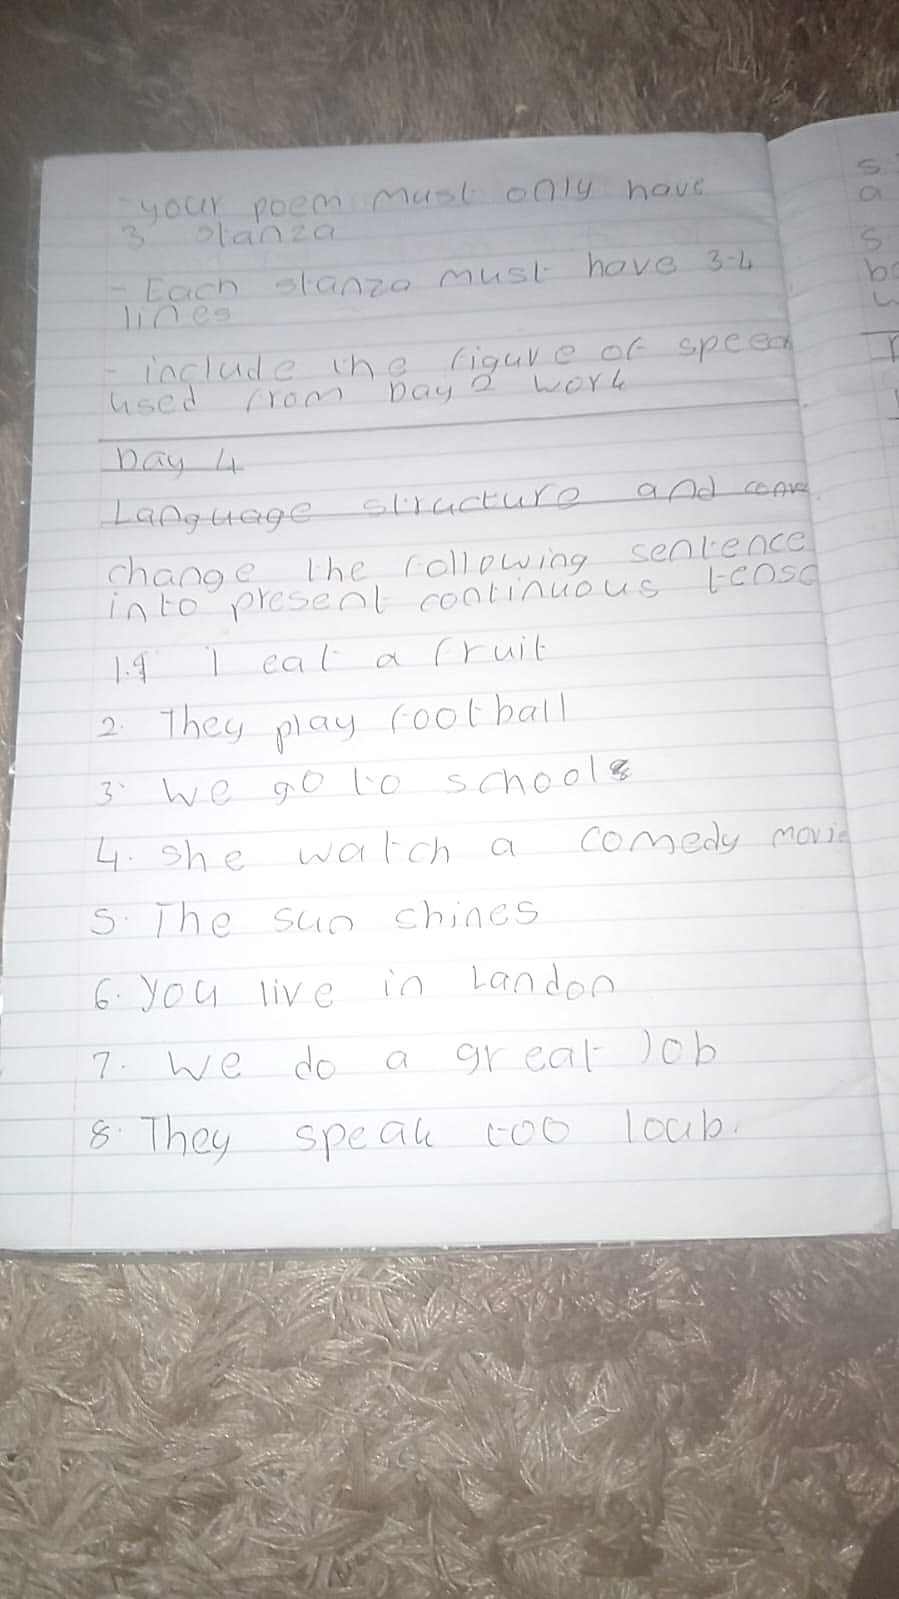 - your poem must only have
3 stanza
- Each stanza must have 3-4
lines
- include the figure of speec
used from Day 2 work
Day 4
Language structure and conv
change the following sentence
into present continuous tense
1.1 I eat a fruit
2. They play football
3. We go to schools
4. she watch a comedy movie
5. The sun shines
6. you live in Landon
7. We do a great Job
8. They speak too loub.
s
a
s